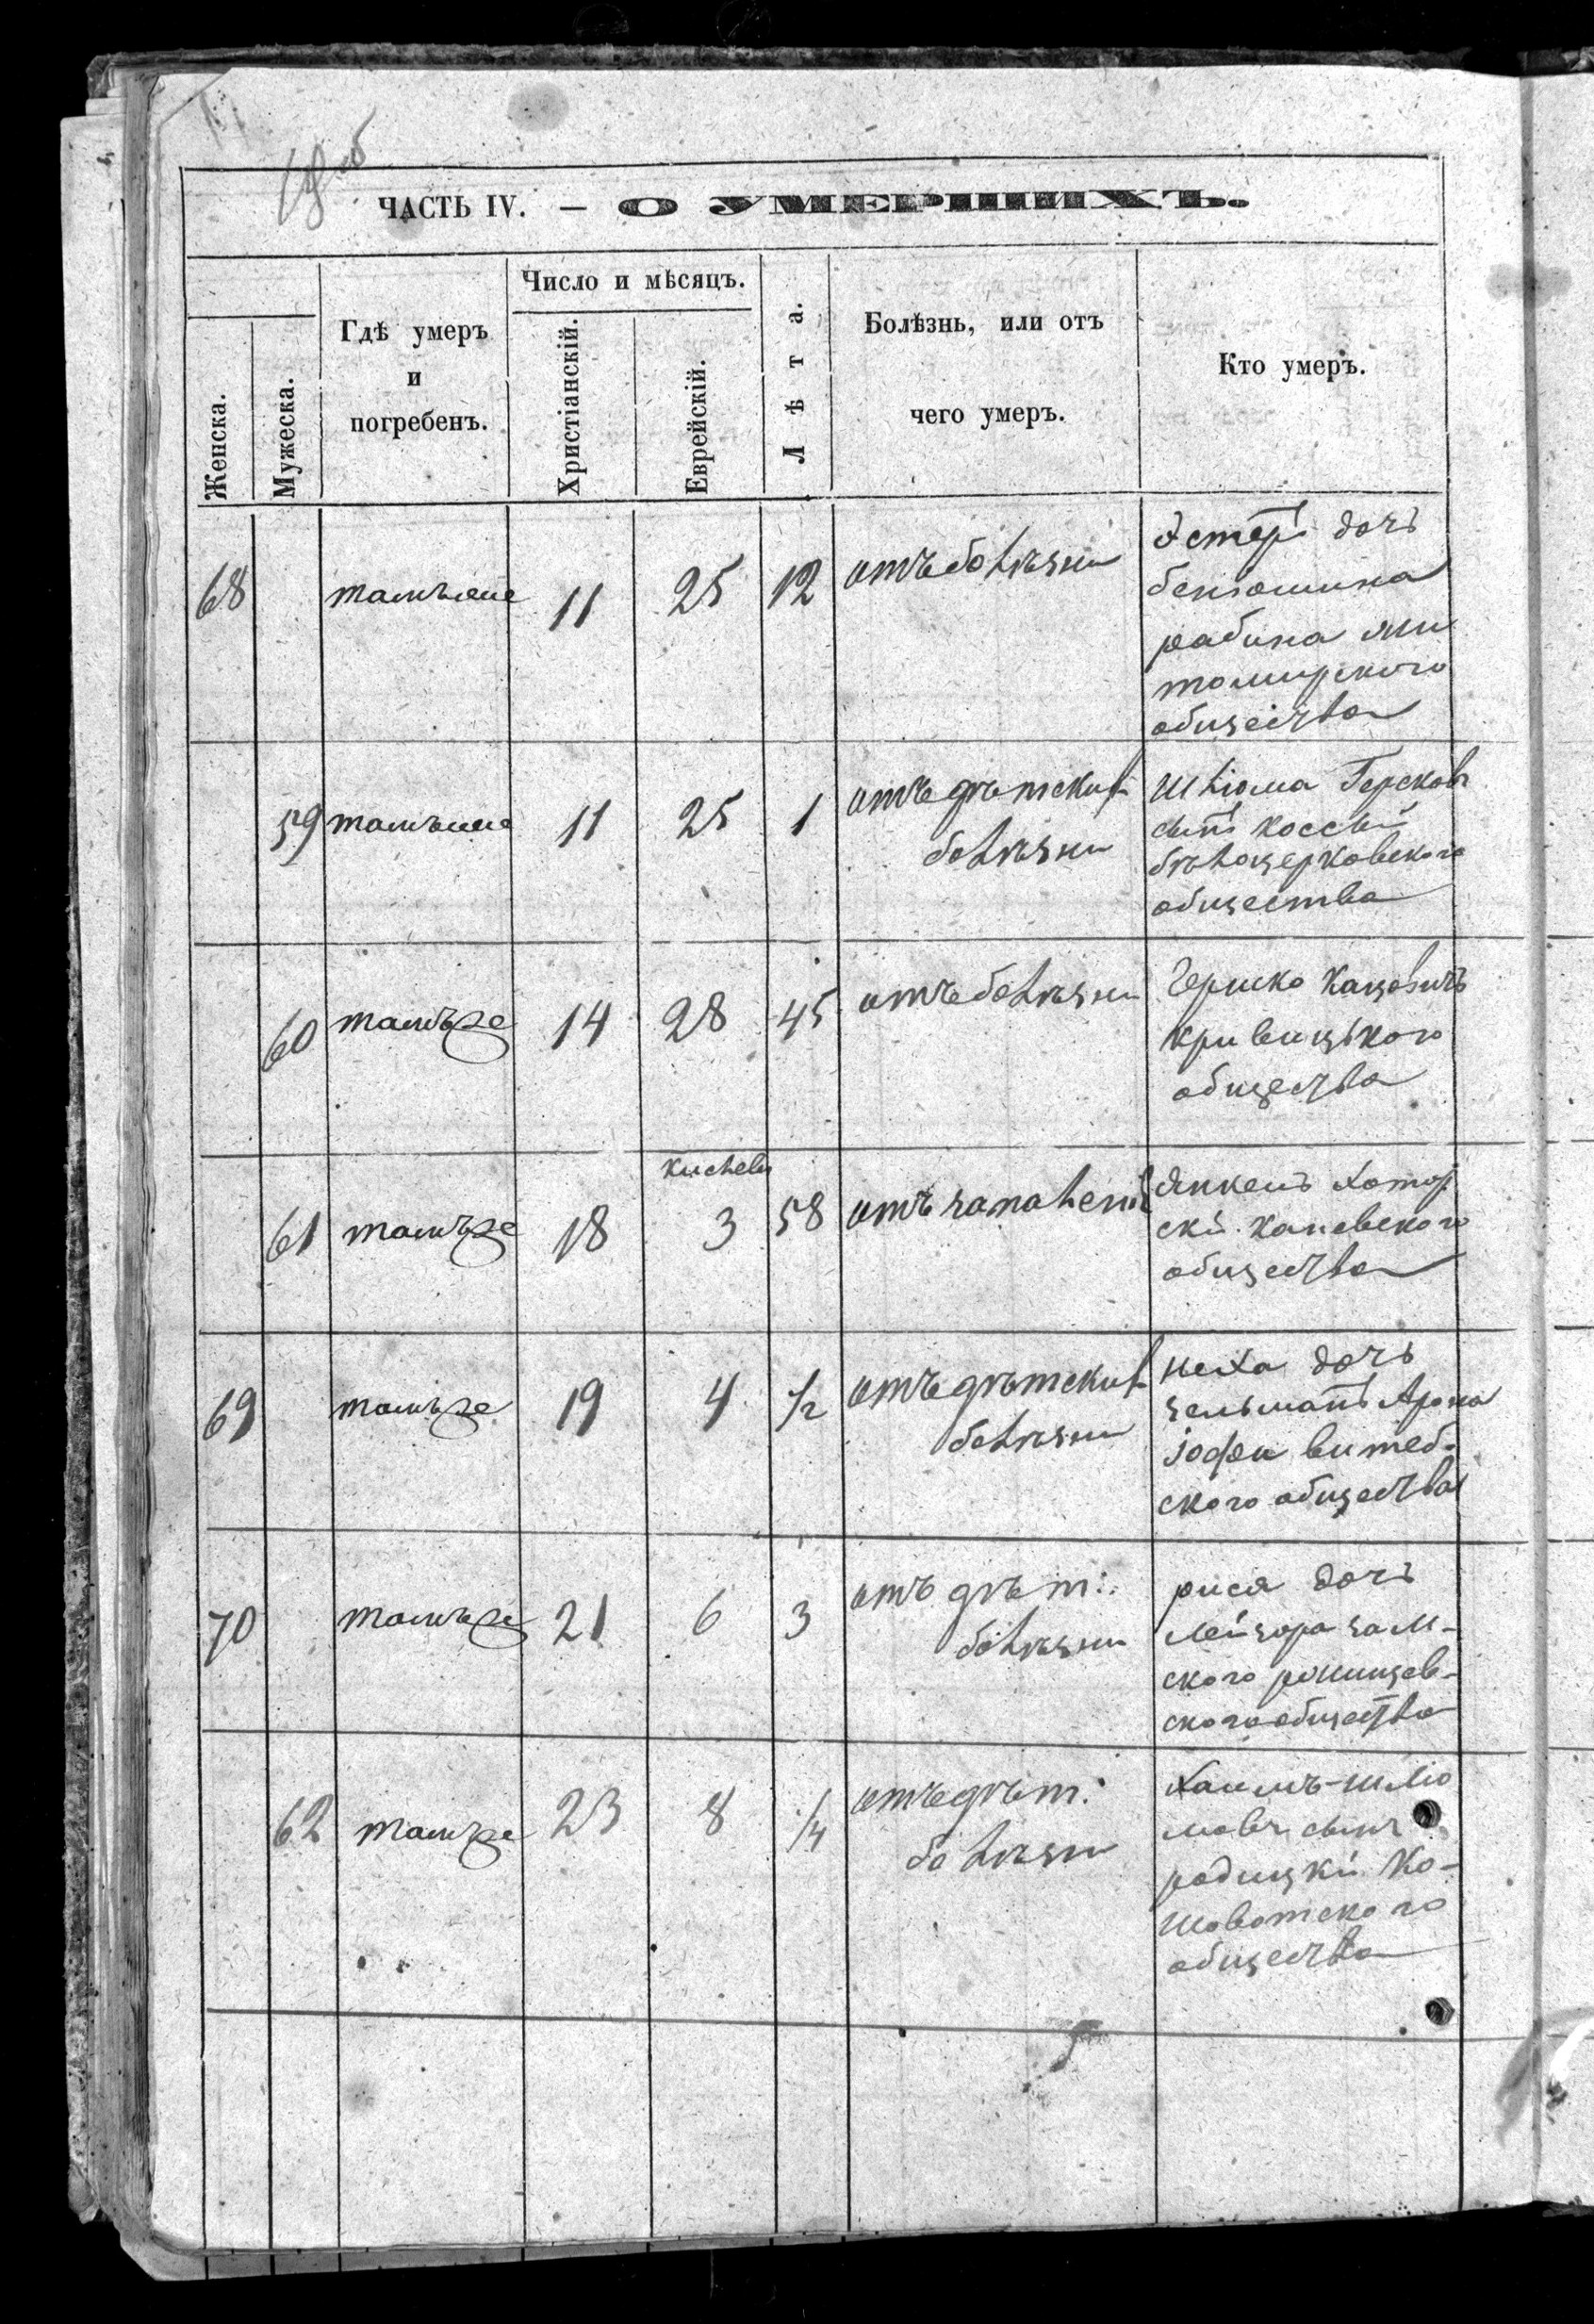 ЧАСТЬ IV. — О УМЕРШИХЪ.
Женска.
Мужеска.
Гдѣ умеръ
и
погребенъ.
Число и мѣсяцъ.
Христіанскій.
Еврейскій.
Лѣта.
Болѣзнь, или отъ
чего умеръ.
Кто умеръ.
68 тамъже 11 25 12 отъ болѣзни
Эстеръ дочь
бенюмина
рабина жи
томирского
общества
59 тамъже 11 25 1 отъ дѣтскихъ
болѣзни
Шлюма Герсковъ
сынъ
бѣлоцерковского
общества
60 тамъже 14 28 45 отъ болѣзни
Гершко Кацовичъ
кривицкого
общества
Кислевъ
61 тамъже 18 3 58 отъ запаленія
Янкель
ски. каневского
общества
69 тамъже 19 4 1/2 отъ дѣтскихъ
болѣзни
неха дочь
зельманъ Арона
іофи витеб-
ского общества
70 тамъже 21 6 3 отъ дѣт:
болѣзни
рися дочь
лейзора зам-
ского
ского общества
62 тамъже 23 8 1/4 отъ дѣт:
болѣзни
Хаимъ-шлю
мовъ сынъ
радицкй Ко-
шоватского
общества